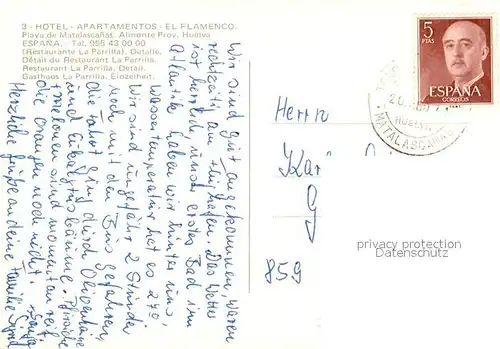 3 - HOTEL - APARTAMENTOS - EL FLAMENCO.
Playa de Matalascañas. Almonte Prov. Huelva
ESPAÑA. Tel. 955 43 00 00
(Restaurante La Parrilla). Detalle.
Détail du Restaurant La Parrilla.
Restaurant La Parrilla, Detail.
Gasthaus La Parrilla. Einzelheit.
Wir sind gut angekommen, waren
rechtzeitig am Flughafen. Das Wetter
ist herrlich, unser erstes Bad im
Atlantik haben wir hinter uns,
Wassertemperatur hat es 24°
Wir sind ungefähr 2 Stunden
noch mit dem Bus gefahren,
die Fahrt ging durch Olivenhaine
und Eukalyptusbäume. Pfirsiche
Melonen sind momentan reif
die Orangen noch nicht.
Herzliche Grüße an deine Familie
5
PTAS
ESPAÑA
CORREOS
HUELVA
MATALASCAÑAS
Herrn
Kar
G
859
privacy protection
Datenschutz